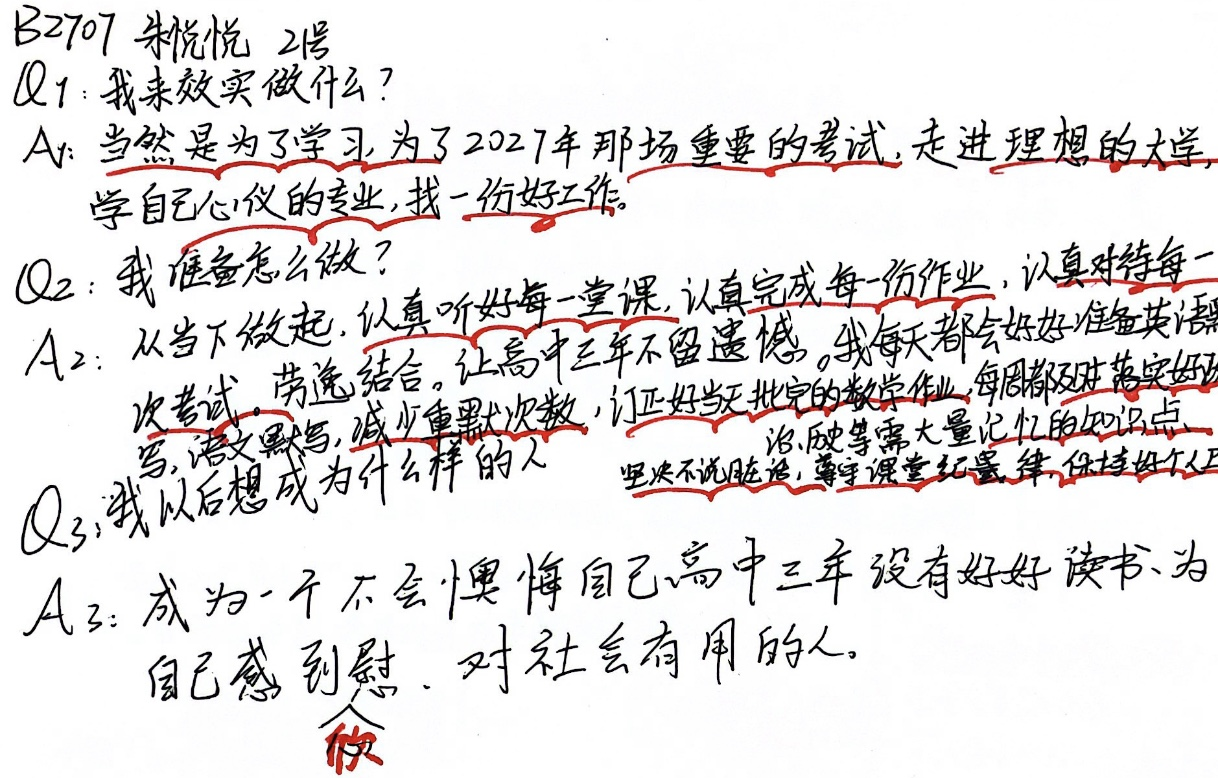 B2707 朱悦悦 21号
Q1:我来效实做什么?
A1:当然是为了学习,为了2027年那场重要的考试,走进理想的大学,
学自己心仪的专业,找一份好工作。
Q2:我准备怎么做?
A2:从当下做起,认真听好每一堂课,认真完成每一份作业,认真对待每一
次考试。劳逸结合。让高中三年不留遗憾。我每天都会好好准备英语默
写,语文默写,减少重默次数,订正好当天批完的数学作业,每周都及时落实好政
治、历史等需大量记忆的知识点、
坚决不说脏话,尊守课堂纪律,保持好个人卫
Q3:我以后想成为什么样的人
A3:成为一个不会懊悔自己高中三年没有好好读书、为
自己感到慰、对社会有用的人。